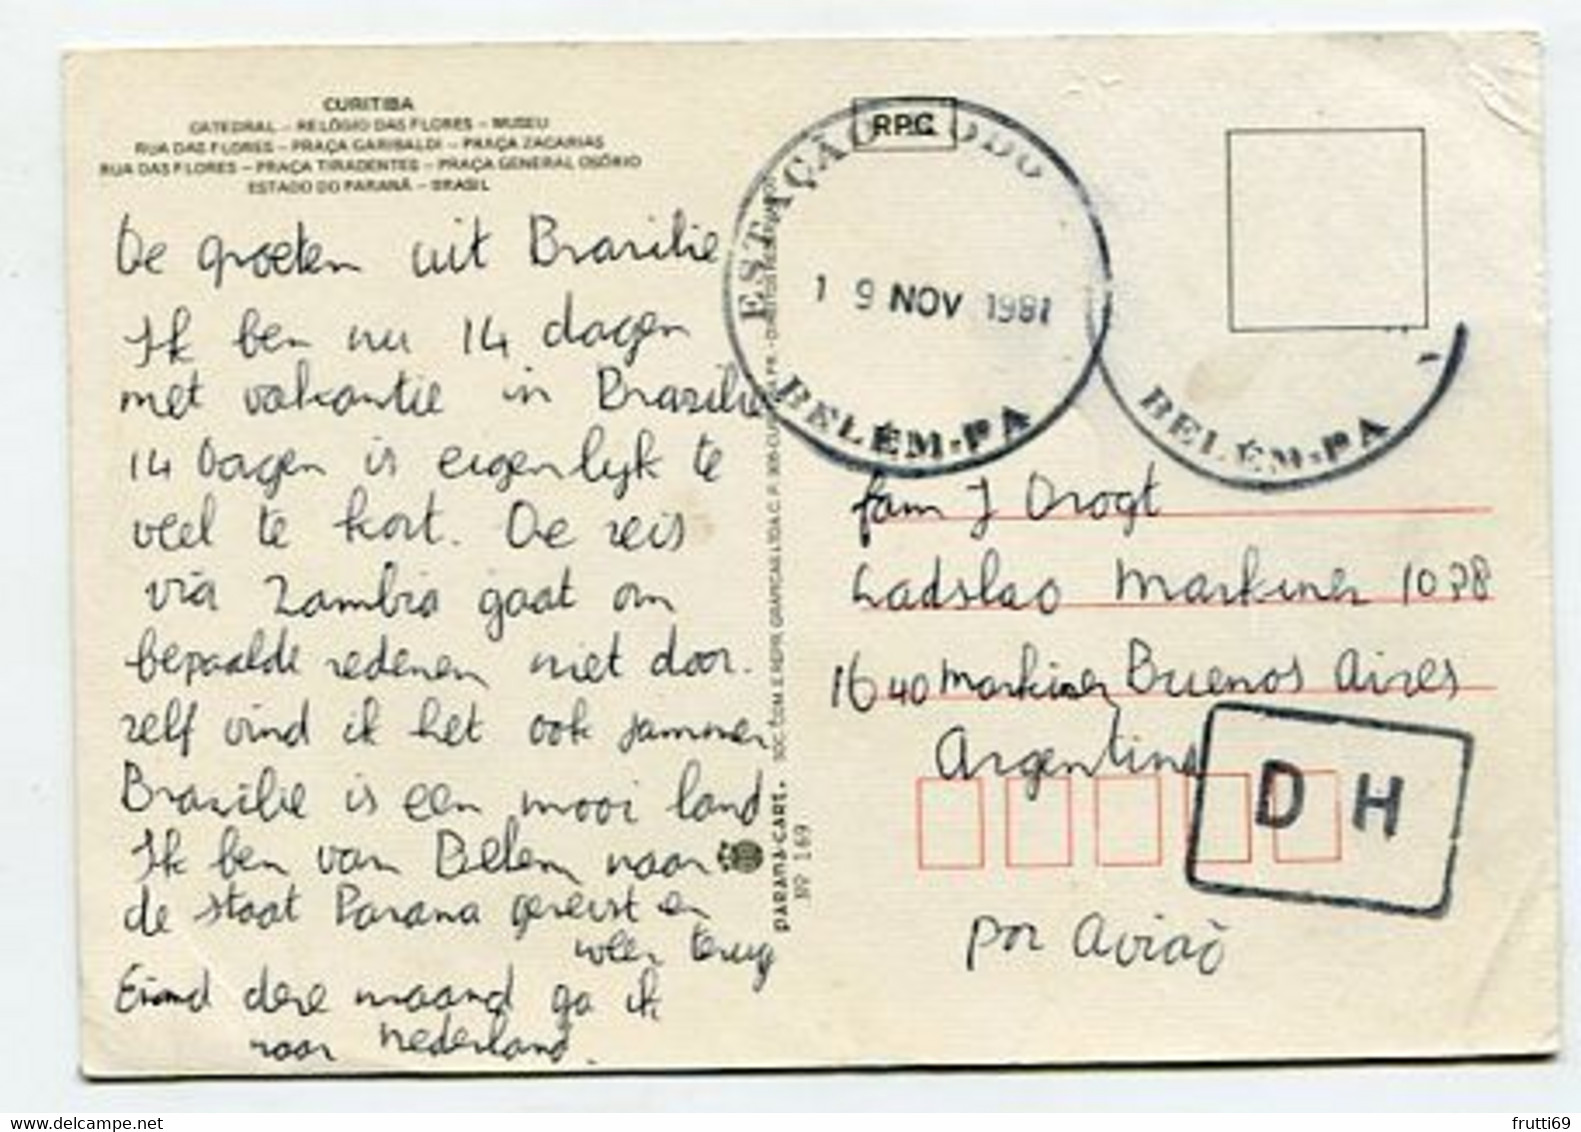 CURITIBA
CATEDRAL – RELÓGIO DAS FLORES – MUSEU
RUA DAS FLORES – PRAÇA GARIBALDI – PRAÇA ZACARIAS
RUA DAS FLORES – PRAÇA TIRADENTES – PRAÇA GENERAL OSÓRIO
ESTADO DO PARANÁ – BRASIL
De groeten uit Brazilie
Ik ben nu 14 dagen
met vakantie in Brazilie
14 Dagen is eigenlijk te
veel te kort. De reis
via Zambia gaat om
bepaalde redenen niet door.
zelf vind ik het ook jammer
Brazilie is een mooi land
Ik ben van Belem naar
de staat Parana gereist en
weer terug
Eind deze maand ga ik
naar Nederland.
PARANA-CART.
RPC
ESTAÇÃO
19 NOV 1981
BELÉM-PA
BELÉM-PA
fam J Drogt
Ladslao Markiner 1078
1640 Markiner Buenos Aires
Argentine
DH
por Aviaõ
delcampe.net
frutti69